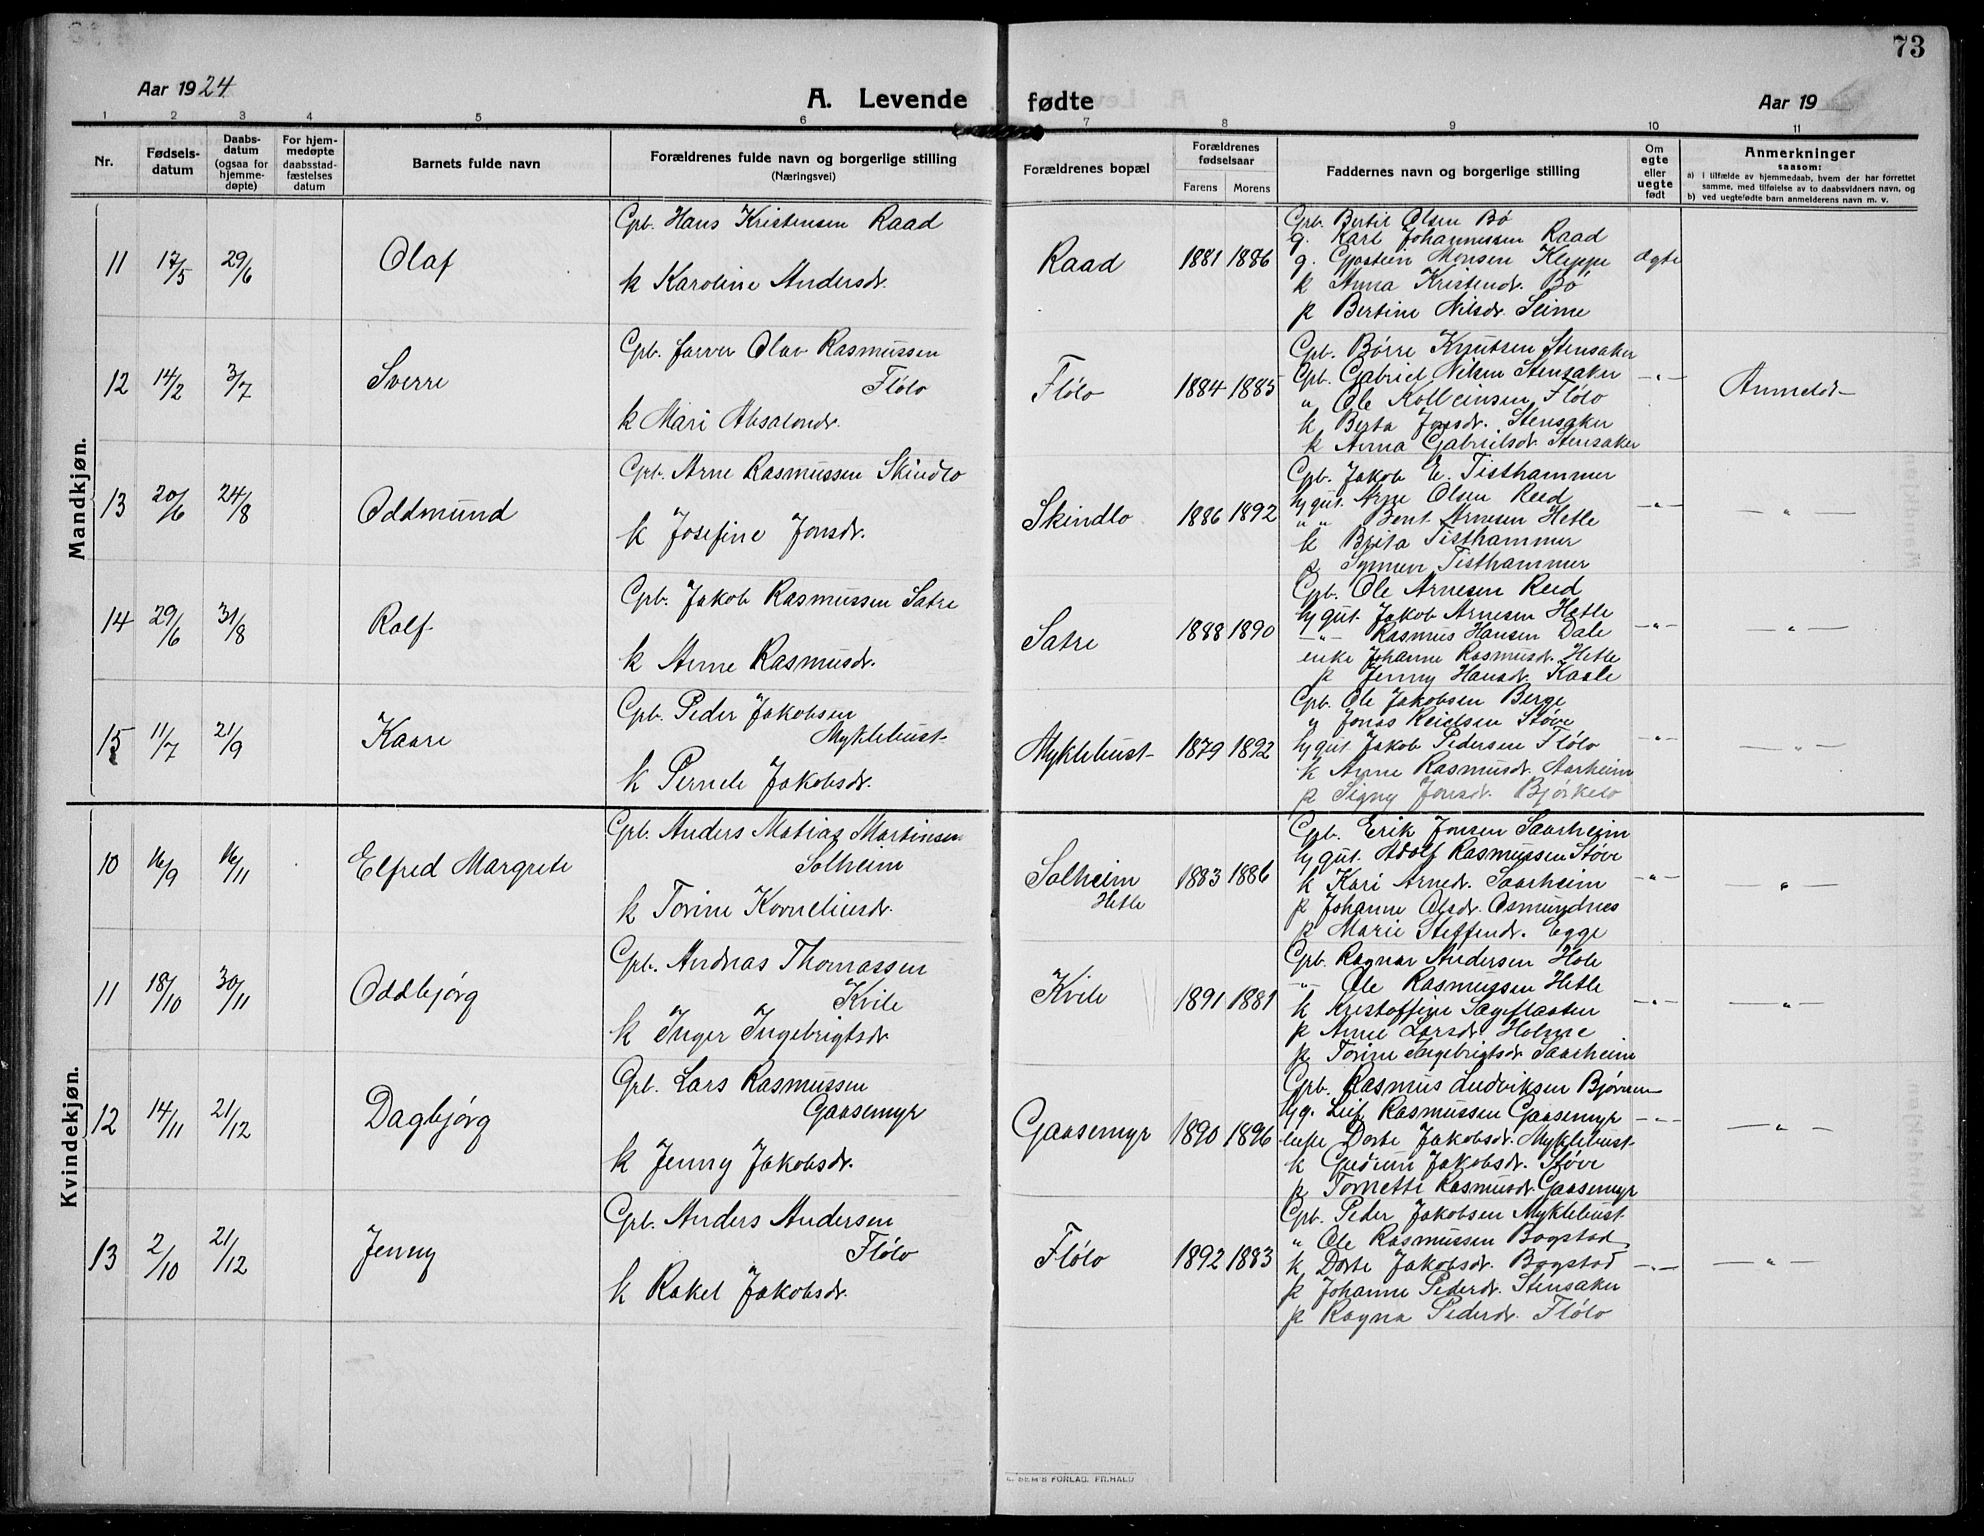 73
Aar 1924
A. Levende fødte
Aar 19
1 2 3 4 5 6 7 8 9 10 11
Nr.
Fødselsdatum
Daabsdatum (ogsaa for hjemmedøpte)
For hjemmedøpte daabsstadfæstelses datum
Barnets fulde navn
Forældrenes fulde navn og borgerlige stilling (Næringsvei)
Forældrenes bopæl
Forældrenes fødselsaar
Farens Morens
Faddernes navn og borgerlige stilling
Om egte eller uegte født
Anmerkninger
saasom:
a) i tilfælde av hjemmedaab, hvem der har forrettet samme, med tilføielse av to daabsvidners navn, og
b) ved uegtefødte barn anmelderens navn m. v.
Mandkjøn.
11 17/5 29/6 Olaf
Grb. Hans Kristensen Raad
k Karoline Andersdr.
Raad 1881 1886
Grb. Bertil Olsen Bø
g. Karl Johannessen Raad
g. Monsen Kleppe
k Anna Kristendr. Bø
p Bertine Nilsdr. Seime
ægte
12 14/2 3/7 Sverre
Grb. farver Olav Rasmussen
Flølo
k Mari Absalondr.
Fløło 1884 1885
Grb. Børre Knutsen Stensaker
Grb. Gabriel Nilsen Stensaker
" Ole Kolbeinsen Flølo
k Berta Jonsdr. Stensaker
k Anna Gabrielsdr. Stensaker
-"- Anmeldt
13 20/6 24/8 Oddmund
Grb. Arne Rasmussen Skindlo
k Josefine Jonsdr.
Skindlo 1886 1892
Grb. Jakob E. Tisthammer
ug gut. Arne Olsen Reed
" " Bent Arnesen Hetle
k Brita Tisthammer
p Synneve Tisthammer
-"- -"-
14 29/6 31/8 Rolf
Grb. Jakob Rasmussen Satre
k Anne Rasmusdr.
Satre 1888 1890
Grb. Ole Arnesen Reed
ug gut. Jakob Arnesen Hetle
-"- Rasmus Hansen Dale
enke Johanne Rasmusdr. Hetle
p Jenny Hansdr.
-"- -"-
15 11/7 21/9 Kaare
Grb. Peder Jakobsen
Myklebust
k Pernele Jakobsdr.
Myklebust 1879 1892
Grb. Ole Jakobsen Berge
" Jonas Reielsen Støve
ug gut Jakob Pedersen Flølo
k Anne Rasmusdr. Aarheim
p Signy Jonsdr. Bjørkelo
-"- -"-
Kvindekjøn.
10 16/9 16/11 Elfred Margrete
Grb. Anders Matias Martinsen
Solheim
k Torine Korneliusdr.
Solheim
Hetle
1883 1886
Grb. Erik Jonsen Saarheim
ug gut. Adolf Rasmussen Støve
k Kari Arnedr. Saarheim
p Johanne Olsdr. Osmundnes
p Marie Steffendr. Egge
-"- -"-
11 18/10 30/11 Oddbjørg
Grb. Andreas Thomassen
Kvile
k Inger Ingebrigtsdr
Kvile 1891 1881
Grb. Ragnar Andersen Hole
-"- Ole Rasmussen Hetle
k Kristoffine Sægflaaten
p Anne Larsdr. Holme
p Torine Ingebrigtsdr. Saarheim
-"- -"-
12 14/11 21/12 Dagbjørg
Grb. Lars Rasmussen
Gaasemyr
k Jenny Jakobsdr.
Gaasemyr 1890 1896
Grb. Rasmus Ludviksen Bjørnem
ug. Leif Rasmussen Gaasemyr
enke Dorte Jakobsdr. Myklebust
k Gudrun Jakobsdr. Støve
p Tomette Rasmusdr. Gaasemyr
-"- -"-
13 2/10 21/12 Jenny
Grb. Anders Andersen
Flølo
k Rakel Jakobsdr.
Flølo 1892 1883
Grb. Peder Jakobsen Myklebust
" Ole Rasmussen Bogstad
k Dorte Jakobsdr. Bogstad
p Johanne Pederdr. Stensaker
p Ragna Pederdr. Flølo
-"- -"-
SEM'S FORLAG. FR.HALD